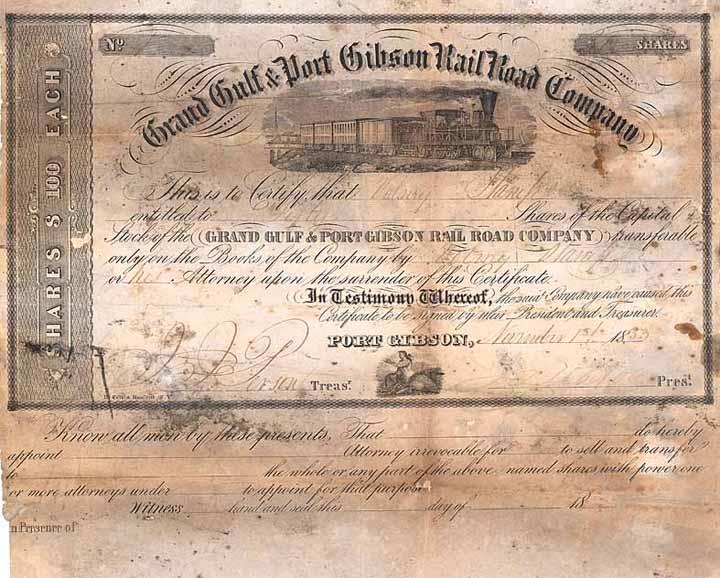 No SHARES
SHARES $ 100 EACH
Grand Gulf & Port Gibson Rail Road Company
This is to Certify, that
entitled to Shares of the Capital
Stock of the GRAND GULF & PORT GIBSON RAIL ROAD COMPANY transferable
only on the Books of the Company by
or her Attorney upon the surrender of this Certificate
In Testimony Whereof, the said Company have caused this
Certificate to be signed by their President and Treasurer
PORT GIBSON, 18
Treas.r Pres.t
Know all men by these presents, That do hereby
appoint Attorney irrevocable for to sell and transfer
to the whole or any part of the above named shares with power one
or more attorneys under to appoint for that purpose
Witness hand and seal this day of 18
In Presence of